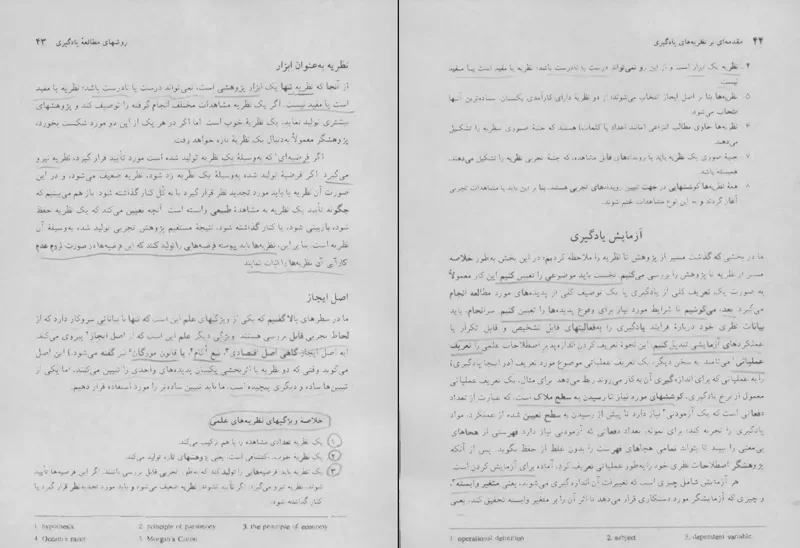 روشهای مطالعهٔ یادگیری ۴۳
نظریه به‌عنوان ابزار
از آنجا که نظریه تنها یک ابزار پژوهشی است، نمی‌تواند درست یا نادرست باشد؛ نظریه یا مفید
است یا مفید نیست. اگر یک نظریه مشاهدات مختلف انجام گرفته را توصیف کند و پژوهشهای
بیشتری تولید نماید، یک نظریهٔ خوب است. اما اگر در هر یک از این دو مورد شکست بخورد،
پژوهشگر معمولاً به‌دنبال یک نظریهٔ تازه خواهد رفت.
اگر فرضیه‌ای¹ که به‌وسیلهٔ یک نظریه تولید شده است مورد تأیید قرار گیرد، نظریه نیرو
می‌گیرد. اگر فرضیهٔ تولید شده به‌وسیلهٔ یک نظریه رد شود، نظریه ضعیف می‌شود، و در این
صورت آن نظریه یا باید مورد تجدید نظر قرار گیرد یا به کُل کنار گذاشته شود. باز هم می‌بینیم که
چگونه تأیید یک نظریه به مشاهدهٔ طبیعی وابسته است. آنچه تعیین می‌کند که یک نظریه حفظ
شود، بازبینی شود، یا کنار گذاشته شود، نتیجهٔ مستقیم پژوهش تجربی تولید شده به‌وسیلهٔ آن
نظریه است. بنا بر این، نظریه‌ها باید پیوسته فرضیه‌هایی را تولید کنند که این فرضیه‌ها در صورت لزوم عدم
کارآیی آن نظریه‌ها را اثبات نمایند.
اصل ایجاز
ما در سطرهای بالا گفتیم که یکی از ویژگیهای علم این است که تنها با بیاناتی سروکار دارد که از
لحاظ تجربی قابل بررسی هستند. ویژگی دیگر علم این است که از اصل ایجاز² پیروی می‌کند.
(به اصل ایجاز گاهی اصل اقتصادی³، تیغ اُکام⁴، یا قانون مورگان⁵ نیز گفته می‌شود.) این اصل
می‌گوید وقتی که دو نظریه با اثربخشی یکسان پدیده‌های واحدی را تبیین می‌کنند، اما یکی از
تبیین‌ها ساده و دیگری پیچیده است، ما باید تبیین ساده‌تر را مورد استفاده قرار دهیم.
خلاصهٔ ویژگیهای نظریه‌های علمی
۱ یک نظریه تعدادی مشاهده را با هم ترکیب می‌کند.
۲ یک نظریهٔ خوب، اکتشافی است، یعنی پژوهشهای تازه تولید می‌کند.
۳ یک نظریه باید فرضیه‌هایی را تولید کند که به‌طور تجربی قابل بررسی باشند. اگر این فرضیه‌ها تأیید
شوند، نظریه نیرو می‌گیرد؛ اگر تأیید نشوند، نظریه ضعیف می‌شود و باید مورد تجدید نظر قرار گیرد یا
کنار گذاشته شود.
1. hypothesis 2. principle of parsimony 3. the principle of economy
4. Occam's razor 5. Morgan's Canon
۴۴ مقدمه‌ای بر نظریه‌های یادگیری
۴. نظریه یک ابزار است و از این رو نمی‌تواند درست یا نادرست باشد؛ نظریه یا مفید است یا مفید
نیست.
۵. نظریه‌ها بنا بر اصل ایجاز انتخاب می‌شوند؛ از دو نظریهٔ دارای کارآمدی یکسان، ساده‌ترین آنها
انتخاب می‌شود.
۶. نظریه‌ها حاوی مطالب انتزاعی (مانند اعداد یا کلمات) هستند که جنبهٔ صوری نظریه را تشکیل
می‌دهند.
۷. جنبهٔ صوری یک نظریه باید با رویدادهای قابل مشاهده، که جنبهٔ تجربی نظریه را تشکیل می‌دهند،
همبسته باشد.
۸. همهٔ نظریه‌ها کوششهایی در جهت تبیین رویدادهای تجربی هستند، بنا بر این باید با مشاهدات تجربی
آغاز گردند و به این نوع مشاهدات ختم شوند.
آزمایش یادگیری
ما در بخشی که گذشت مسیر از پژوهش تا نظریه را ملاحظه کردیم؛ در این بخش به‌طور خلاصه
مسیر از نظریه تا پژوهش را بررسی می‌کنیم. نخست باید موضوعی را تعیین کنیم. این کار معمولاً
به صورت یک تعریف کلی از یادگیری یا یک توصیف کلی از پدیده‌های مورد مطالعه انجام
می‌گیرد. بعد، می‌کوشیم تا شرایط مورد نیاز برای وقوع پدیده‌ها را تعیین کنیم. سرانجام، باید
بیانات نظری خود دربارهٔ فرایند یادگیری را به‌فعالیتهای قابل تشخیص و قابل تکرار یا
عملکردهای آزمایشی تبدیل کنیم. این نحوهٔ تعریف کردن اندازه‌پذیر اصطلاحات علمی را تعریف
عملیاتی¹ می‌نامند. به سخن دیگر، یک تعریف عملیاتی موضوع مورد تعریف (در اینجا یادگیری)
را به عملیاتی که برای اندازه‌گیری آن به کار می‌روند ربط می‌دهد. برای مثال، یک تعریف عملیاتی
معمول از نرخ یادگیری، کوششهای مورد نیاز تا رسیدن به سطح ملاک است، که عبارت از تعداد
دفعاتی است که یک آزمودنی² نیاز دارد تا پیش از رسیدن به سطح تعیین شده از عملکرد، مواد
یادگیری را تجربه کند؛ برای نمونه، تعداد دفعاتی که آزمودنی نیاز دارد فهرستی از هجاهای
بی‌معنی را ببیند تا بتواند تمامی هجاهای فهرست را بدون غلط از حفظ بگوید. پس از آنکه
پژوهشگر اصطلاحات نظری خود را به‌طور عملیاتی تعریف کرد، آماده برای آزمایش کردن است.
هر آزمایش شامل چیزی است که تغییرات آن اندازه‌گیری می‌شوند، یعنی متغیر وابسته³،
و چیزی که آزمایشگر مورد دستکاری قرار می‌دهد تا اثر آن را بر متغیر وابسته تحقیق کند، یعنی
1. operational definition 2. subject 3. dependent variable